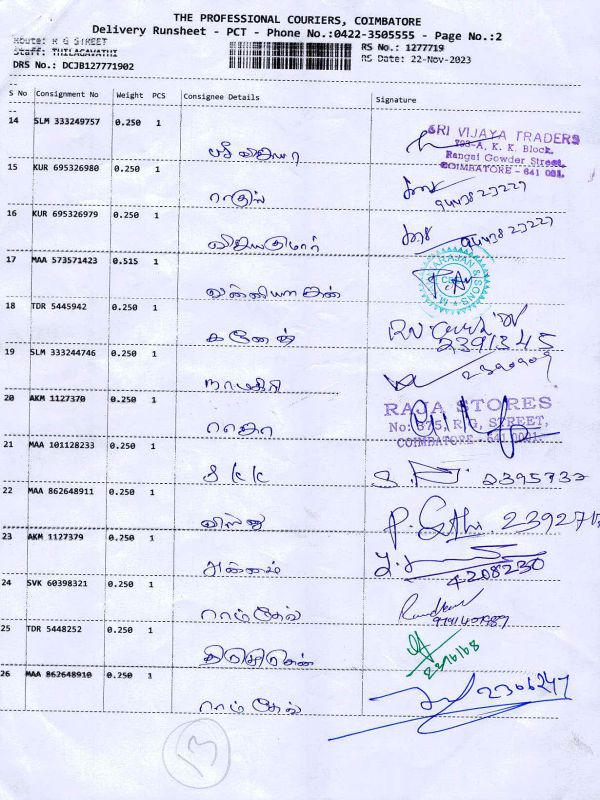 THE PROFESSIONAL COURIERS, COIMBATORE
Delivery Runsheet - PCT - Phone No.:0422-3505555 - Page No.:2
Route: R G STREET
RS No.: 1277719
Staff: THILAGAVATHI
RS Date: 22-Nov-2023
DRS No.: DCJB127771902
S No Consignment No Weight PCS Consignee Details Signature
14 SLM 333249757 0.250 1
ஸ்ரீ விஜயா
SRI VIJAYA TRADERS
793-A, K. K. Block,
Rangai Gowder Street,
COIMBATORE - 641 001.
15 KUR 695326980 0.250 1
ராகுல்
16 KUR 695326979 0.250 1
விஜயகுமார்
17 MAA 573571423 0.515 1
18 TDR 5445942 0.250 1
கணேஷ்
2391345
19 SLM 333244746 0.250 1
20 AKM 1127370 0.250 1
ராஜா
RAJA STORES
No: 375, R.G, STREET,
COIMBATORE - 641 0001.
21 MAA 101128233 0.250 1
S K K
2395733
22 MAA 862648911 0.250 1
23 AKM 1127379 0.250 1
அன்னம்
4208230
24 SVK 60398321 0.250 1
ராம்தேவ்
25 TDR 5448252 0.250 1
26 MAA 862648910 0.250 1
ராம்தேவ்
2306247
13